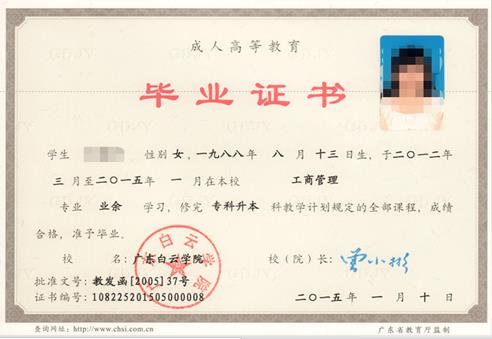 成人高等教育
毕业证书
学生 性别 女，一九八八年 八 月 十三 日生，于二〇一二年
三 月至二〇一五年 一 月在本校 工商管理
专业 业余 学习，修完 专科升本 科教学计划规定的全部课程，成绩
合格，准予毕业。
校 名： 广东白云学院 校（院）长： 曹小彬
批准文号：教发函[2005]37号
证书编号：108225201505000008 二〇一五年 一 月 十 日
查询网址：http://www.chsi.com.cn 广东省教育厅监制